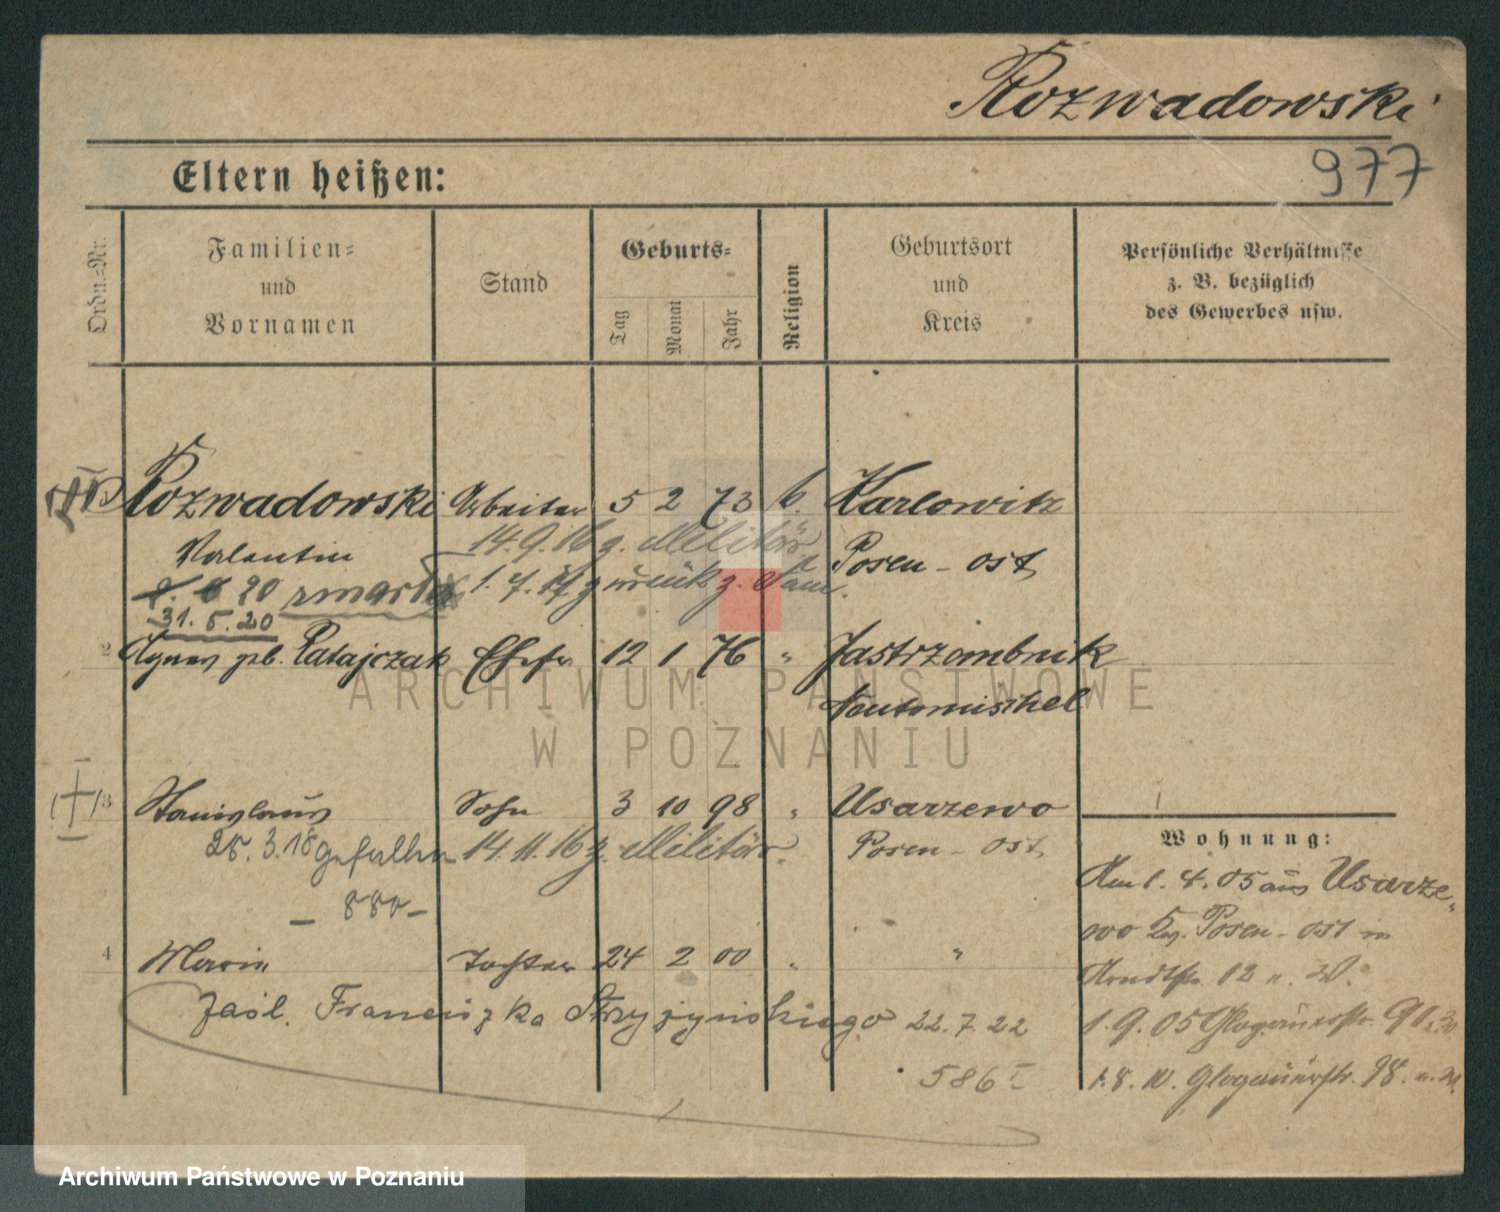 Rozwadowski
977
Eltern heißen:
Ordn.=Nr.
Familien=
und
Vornamen
Stand
Geburts=
Tag
Monat
Jahr
Religion
Geburtsort
und
Kreis
Persönliche Verhältnisse
z. B. bezüglich
des Gewerbes usw.
Rozwadowski Arbeiter 5 2 73 k. Karlowitz
14.9.16 z. Militär
Valentin Posen - ost
20 zmarł 1.7.17 zurück z. Fam.
31.5.20
2 Agnes geb. Ratajczak Ehefr 12 1 76 " Jastrzombnik
Neutomischel
ARCHIWUM PAŃSTWOWE
W POZNANIU
3 Stanislaus Sohn 3 10 98 " Usarzewo
25.3.18 gefallen 14.11.16 z. Militär. Posen - ost
- 880 -
4 Maria Tochter 24 2 00 " "
zaśl. Franciszka Strzyżyńskiego 22.7.22
586 I
Wohnung:
Am 1.4.05 aus Usarze-
wo Posen - ost in
Arndtstr. 12
1.9.05 Glogauerstr. 91
1.8.10. Glogauerstr. 98.
Archiwum Państwowe w Poznaniu